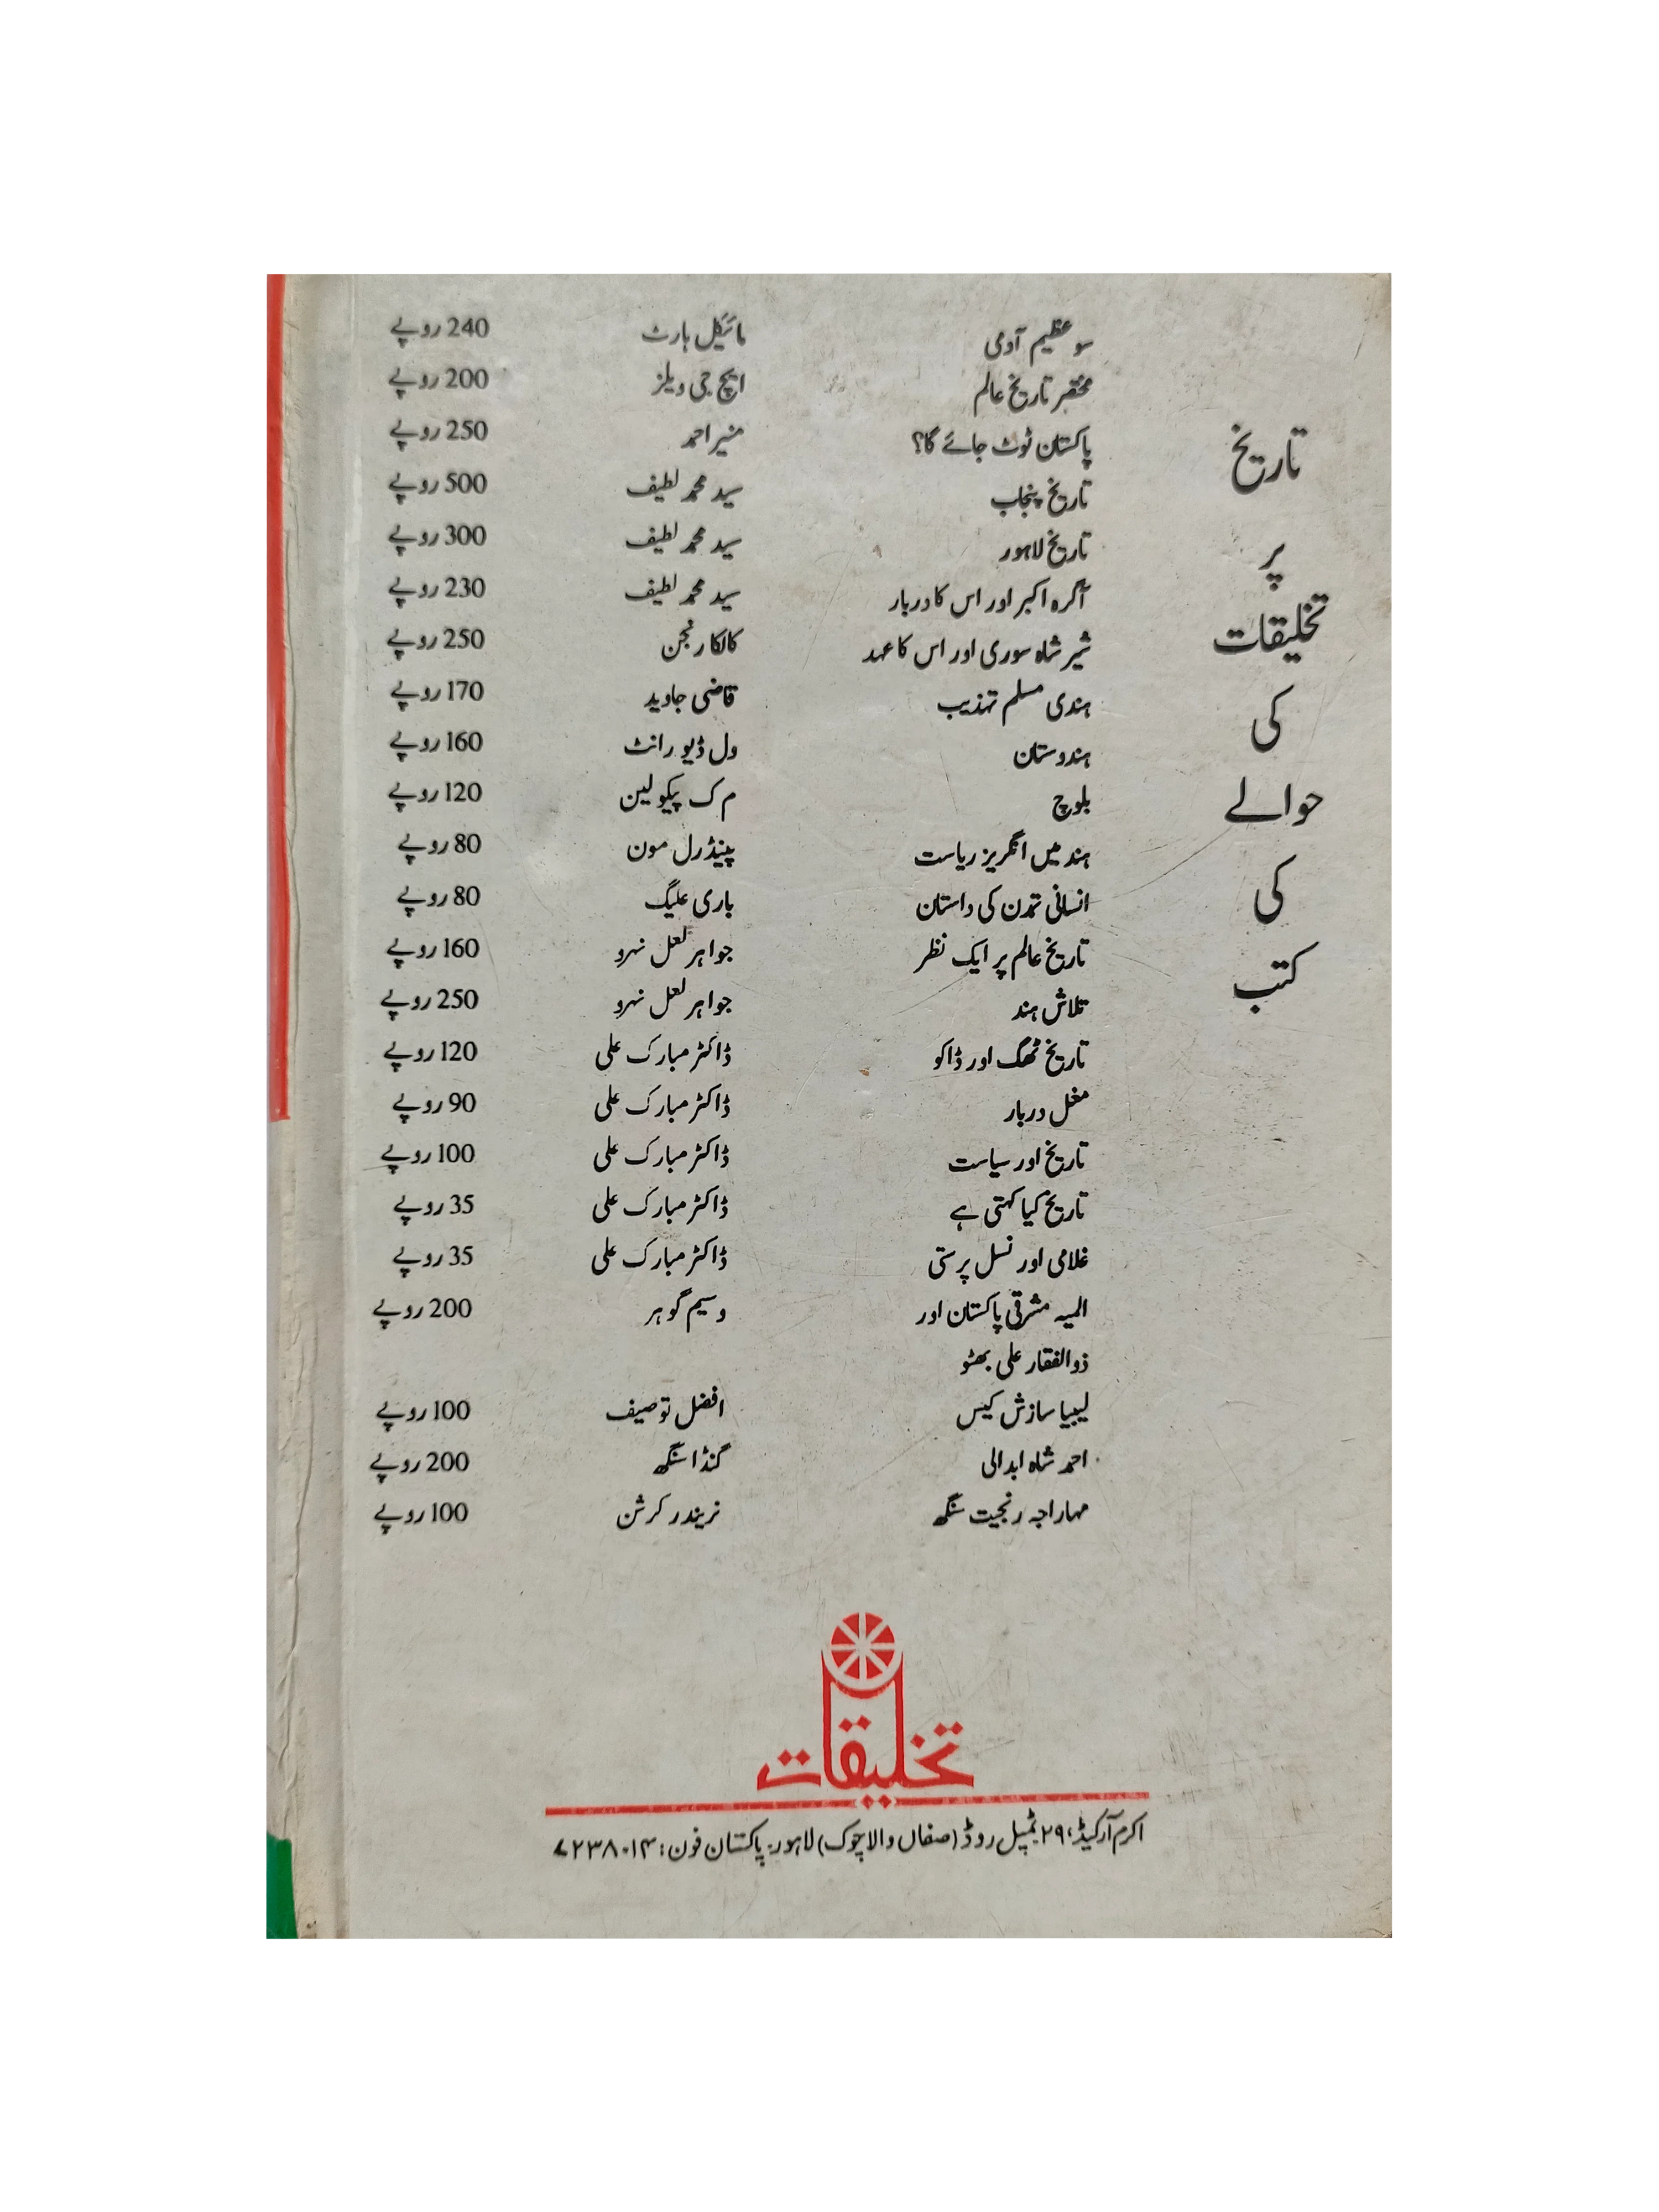 تاریخ
پر
تخلیقات
کی
حوالے
کی
کتب
سو عظیم آدمی مائیکل ہارٹ 240 روپے
مختصر تاریخ عالم ایچ جی ویلز 200 روپے
پاکستان ٹوٹ جائے گا؟ منیر احمد 250 روپے
تاریخ پنجاب سید محمد لطیف 500 روپے
تاریخ لاہور سید محمد لطیف 300 روپے
آگرہ اکبر اور اس کا دربار سید محمد لطیف 230 روپے
شیر شاہ سوری اور اس کا عہد کالکا رنجن 250 روپے
ہندی مسلم تہذیب قاضی جاوید 170 روپے
ہندوستان ول ڈیو رانٹ 160 روپے
بلوچ م ک پیکولین 120 روپے
ہند میں انگریز ریاست پینڈرل مون 80 روپے
انسانی تمدن کی داستان باری علیگ 80 روپے
تاریخ عالم پر ایک نظر جواہر لعل نہرو 160 روپے
تلاش ہند جواہر لعل نہرو 250 روپے
تاریخ ٹھگ اور ڈاکو ڈاکٹر مبارک علی 120 روپے
مغل دربار ڈاکٹر مبارک علی 90 روپے
تاریخ اور سیاست ڈاکٹر مبارک علی 100 روپے
تاریخ کیا کہتی ہے ڈاکٹر مبارک علی 35 روپے
غلامی اور نسل پرستی ڈاکٹر مبارک علی 35 روپے
المیہ مشرقی پاکستان اور وسیم گوہر 200 روپے
ذوالفقار علی بھٹو
لیبیا سازش کیس افضل توصیف 100 روپے
احمد شاہ ابدالی گنڈا سنگھ 200 روپے
مہاراجہ رنجیت سنگھ نریندر کرشن 100 روپے
تخلیقات
اکرم آرکیڈ، ۲۹ ٹمپل روڈ (صفاں والا چوک) لاہور۔ پاکستان فون: ۷۲۳۸۰۱۴